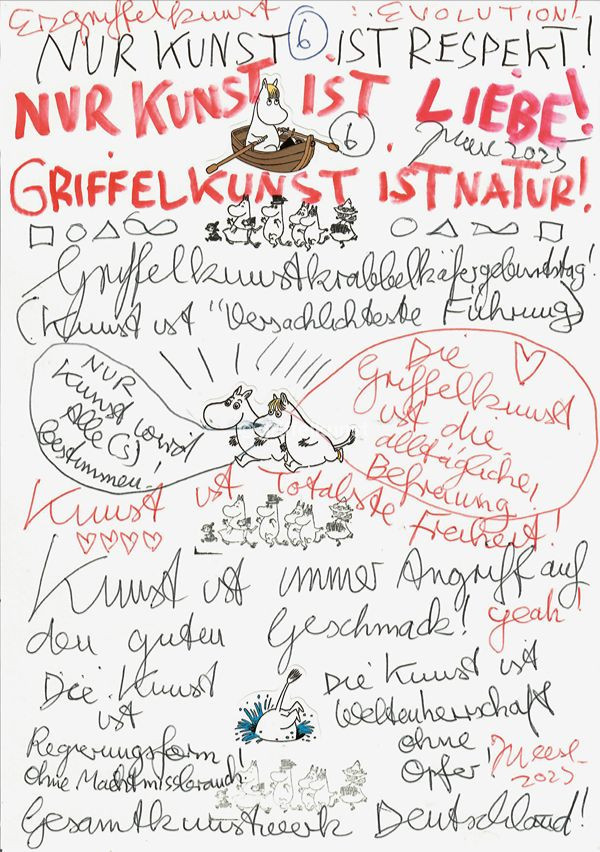 Erzgriffelkunst :. EVOLUTION!
NUR KUNST 6 IST RESPEKT!
NUR KUNST IST LIEBE!
6 Meese 2025
GRIFFELKUNST IST NATUR!
Griffelkunstkrabbelkäfergeburtstag!
(Kunst ist "Versachlichteste Führung)
NUR
Kunst wird
Alle(s)
bestimmen!
Die
Griffelkunst
ist die
alltägliche,
Befreiung.
Kunst ist Totalste Freiheit!
Kunst ist immer Angriff auf
den guten Geschmack! yeah!
Die Kunst
ist
Regierungsform
ohne Machtmissbrauch!
Die Kunst ist
Weltenherrschaft
ohne
Opfer!
Meese
2025
Gesamtkunstwerk Deutschland!